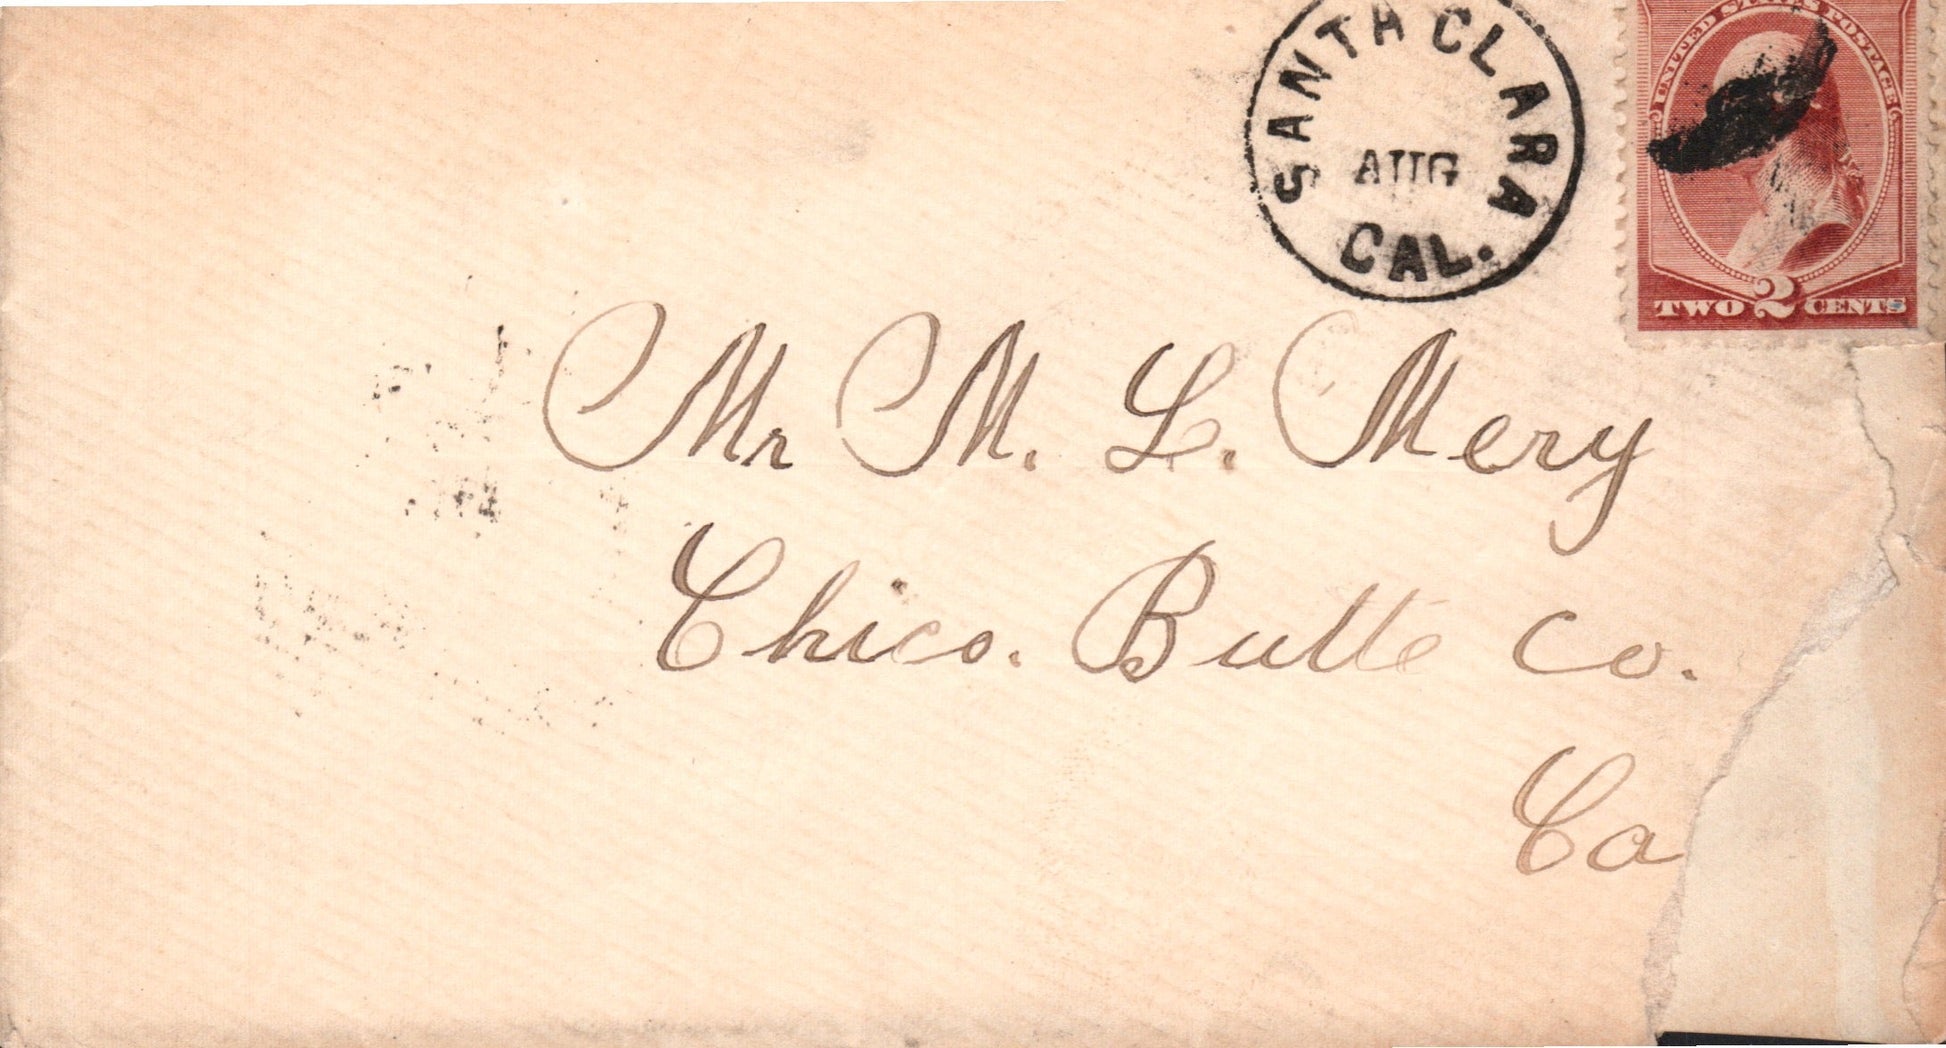 SANTA CLARA
AUG
CAL.
UNITED STATES POSTAGE
TWO 2 CENTS
Mr M. L. Mery
Chico. Butte Co.
Ca